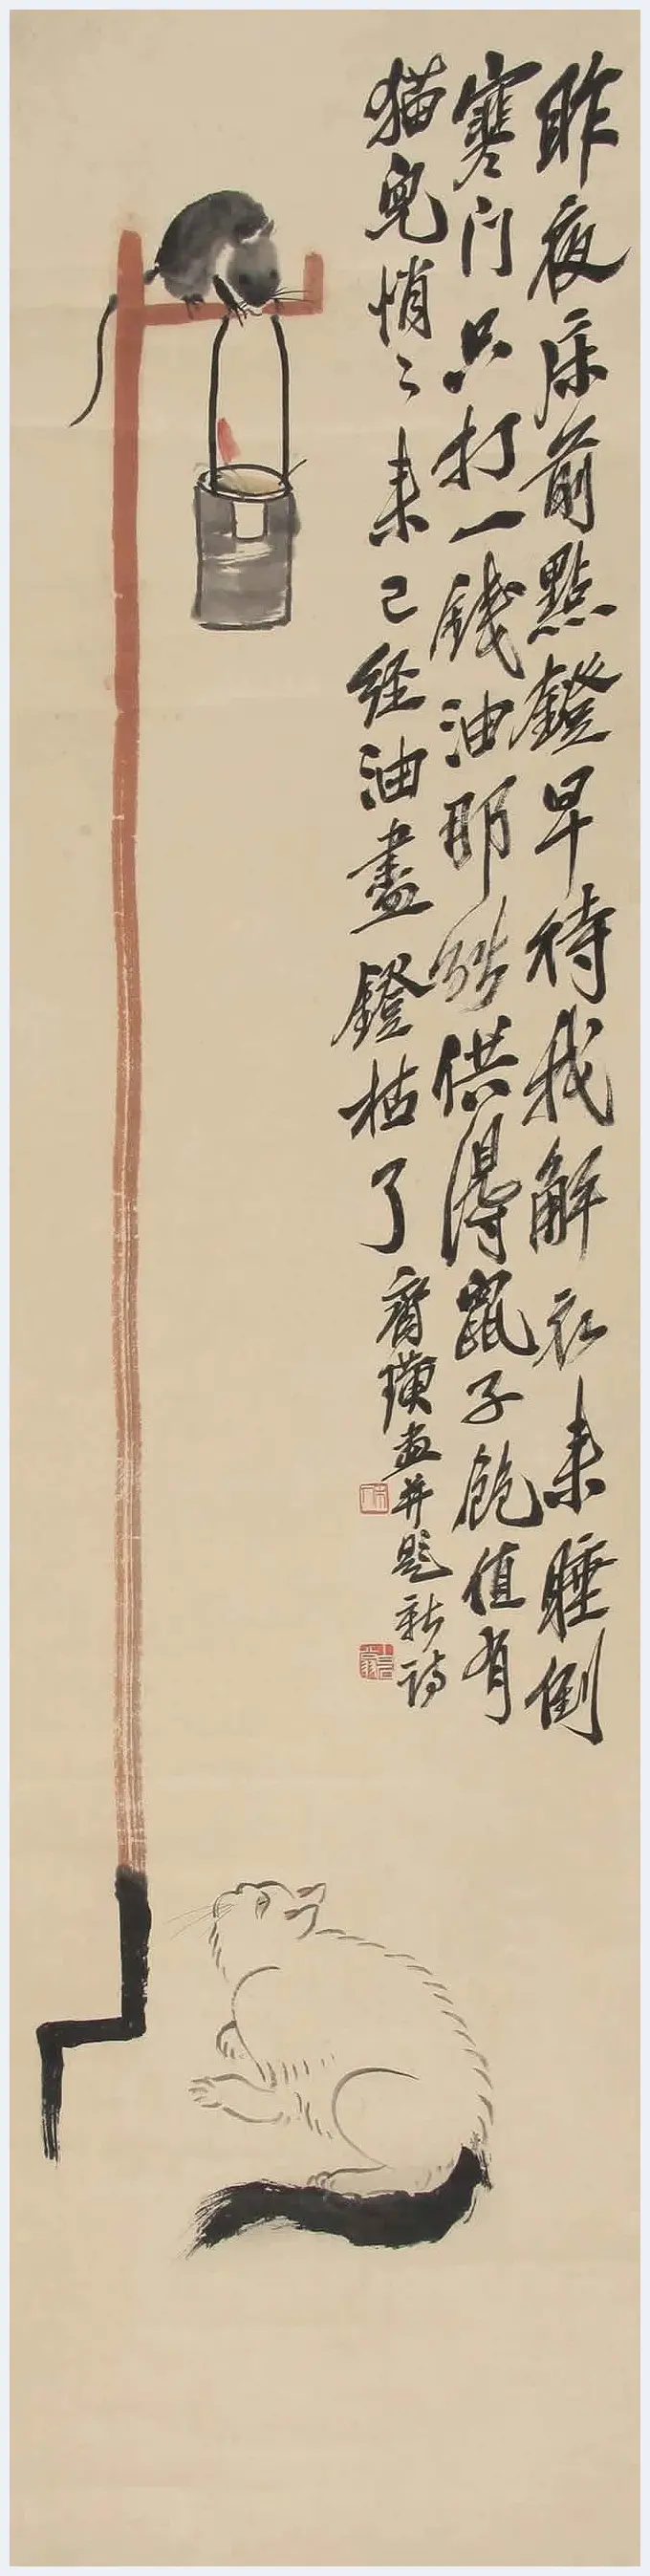 昨夜床前點鐙早待我解衣来睡倒
寒门只打一錢油那能供得鼠子飽值有
猫兒悄〻来已经油盡鐙枯了
齊璜畫并題新詩
木人